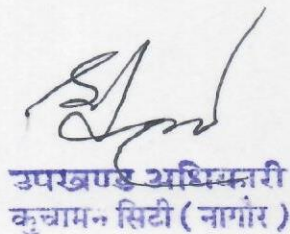 उपखण्ड अधिकारी
कुचामन सिटी ( नागोर )